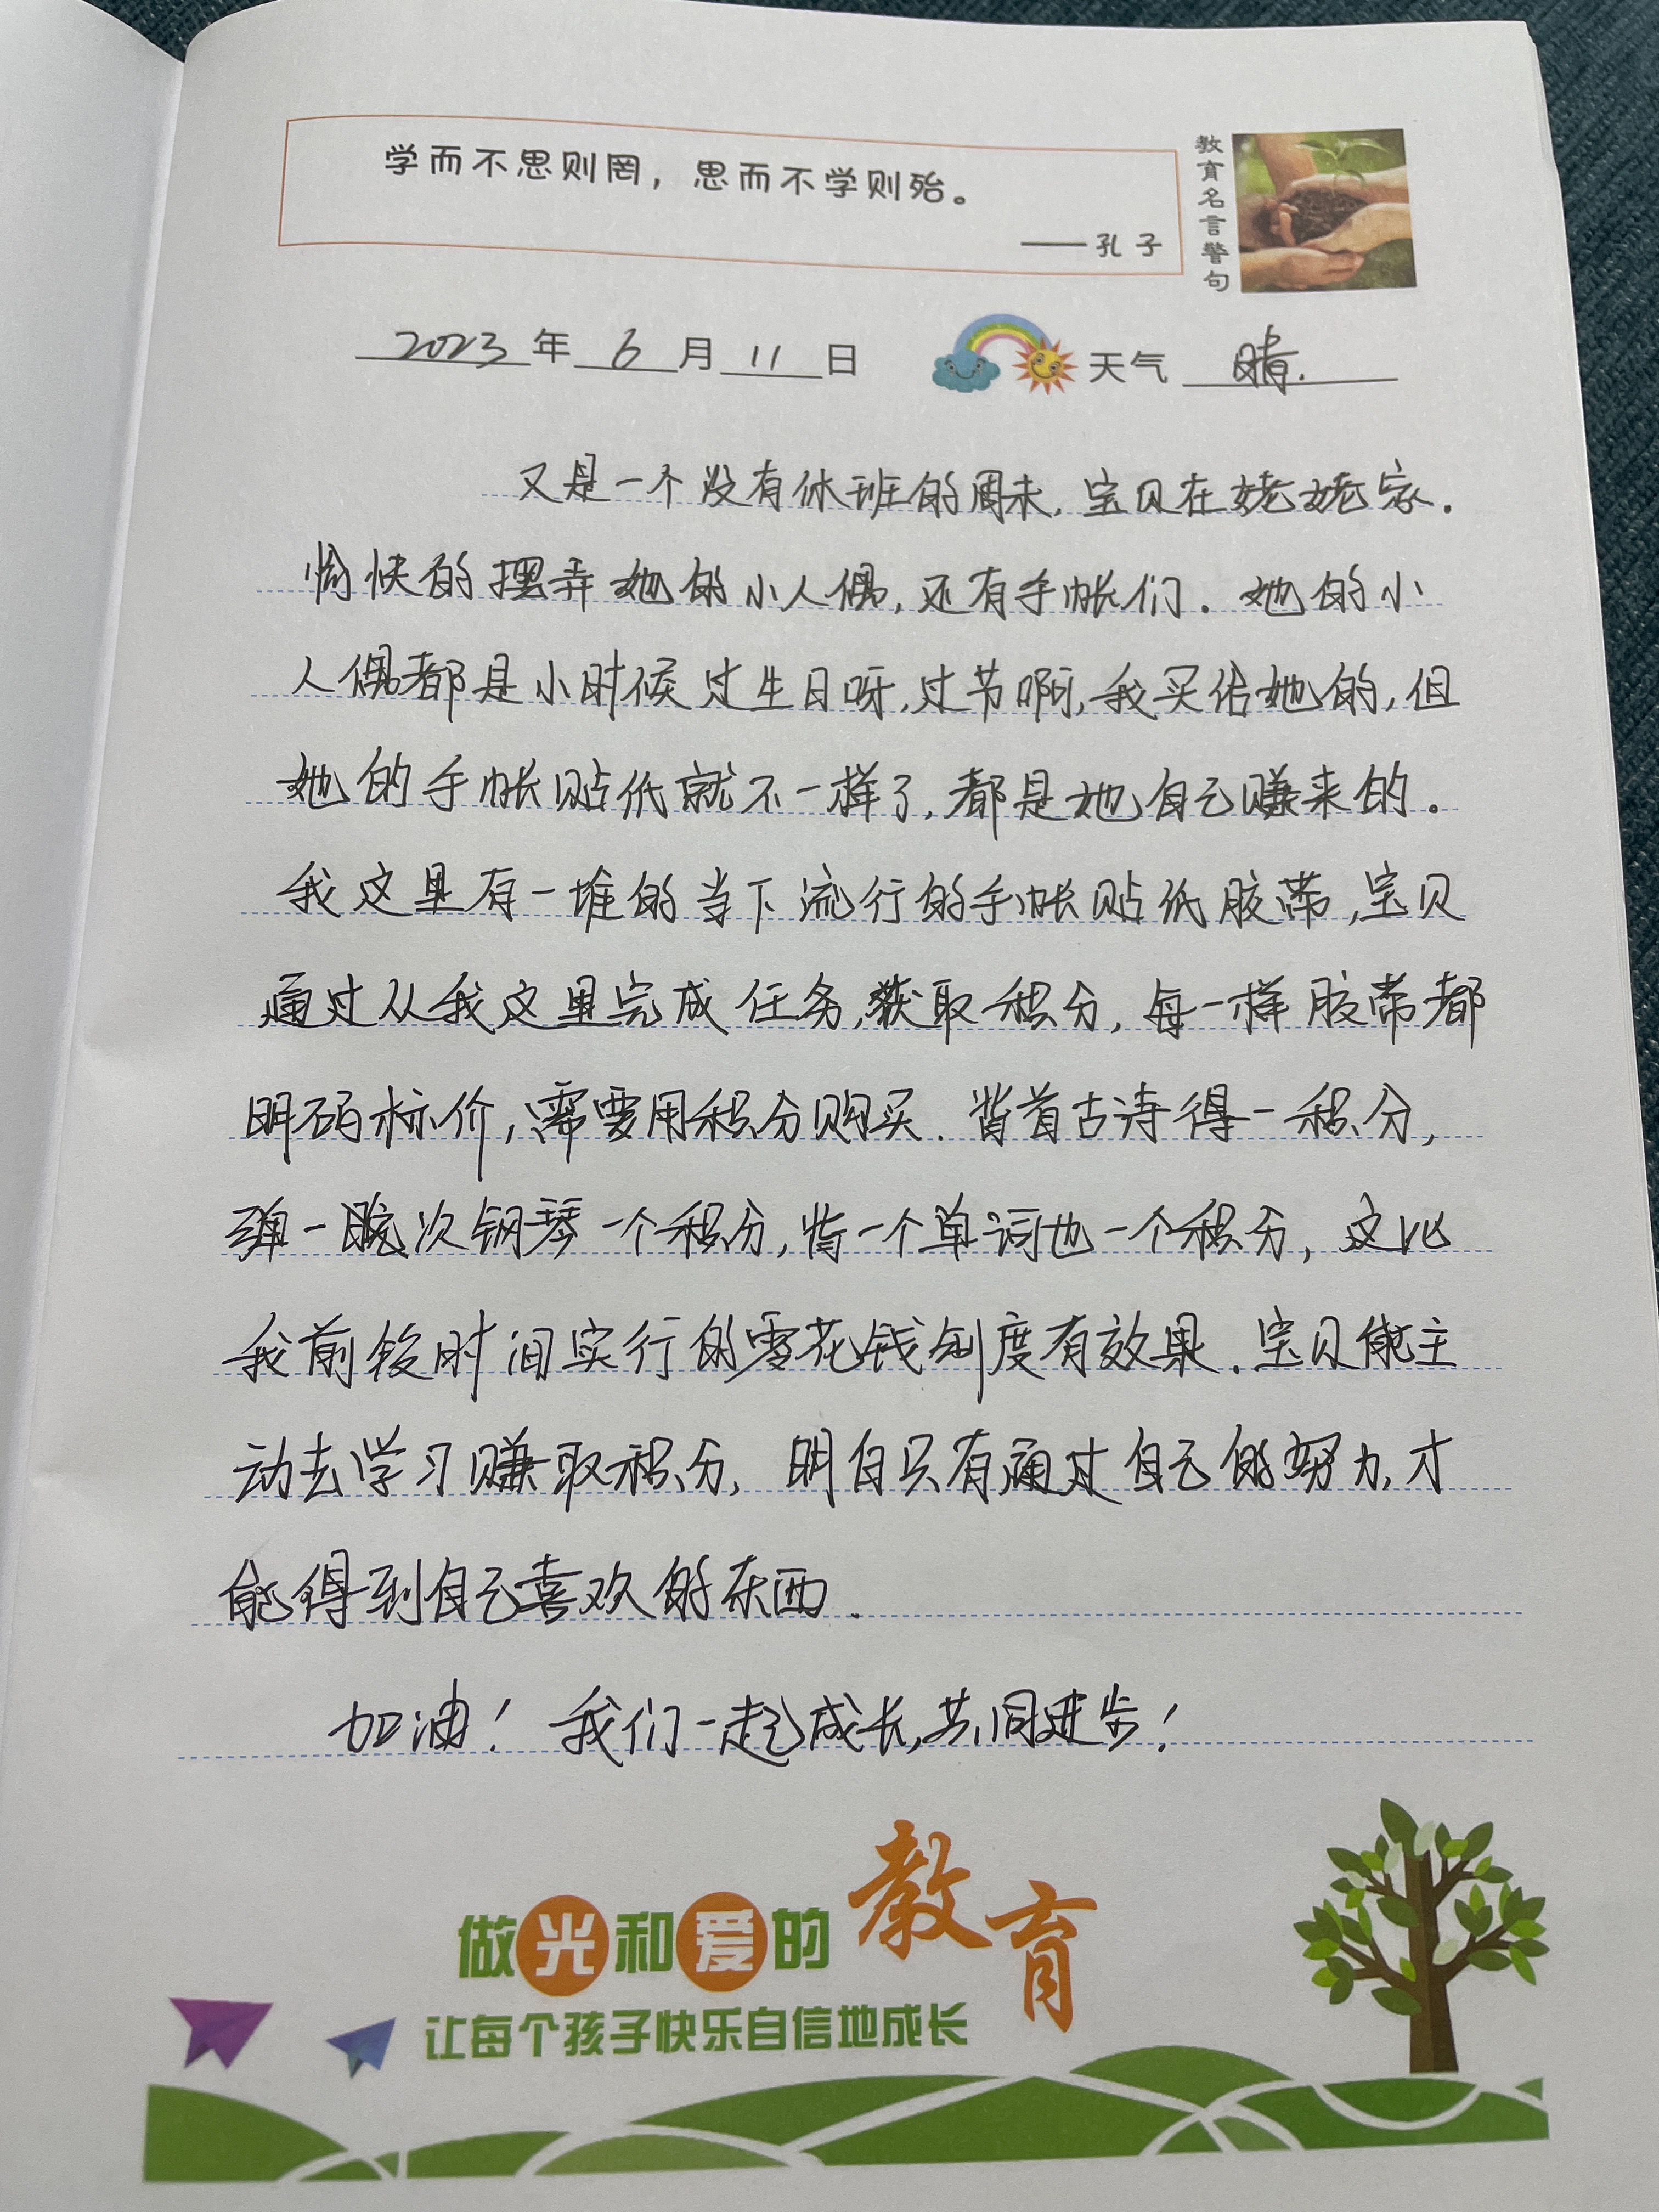 学而不思则罔，思而不学则殆。
——孔子
教育名言警句
2023年6月11日 天气 晴.
又是一个没有休班的周末,宝贝在姥姥家.
愉快的摆弄她的小人偶,还有手帐们.她的小
人偶都是小时候过生日呀,过节啊,我买给她的,但
她的手帐贴纸就不一样了,都是她自己赚来的.
我这里有一堆的当下流行的手帐贴纸胶带,宝贝
通过从我这里完成任务,获取积分,每一样胶带都
明码标价,需要用积分购买.背首古诗得一积分,
弹一晚次钢琴一个积分,背一个单词也一个积分,这比
我前段时间实行的零花钱制度有效果.宝贝能主
动去学习赚取积分,明白只有通过自己的努力,才
能得到自己喜欢的东西.
加油!我们一起成长,共同进步!
做光和爱的教育
让每个孩子快乐自信地成长